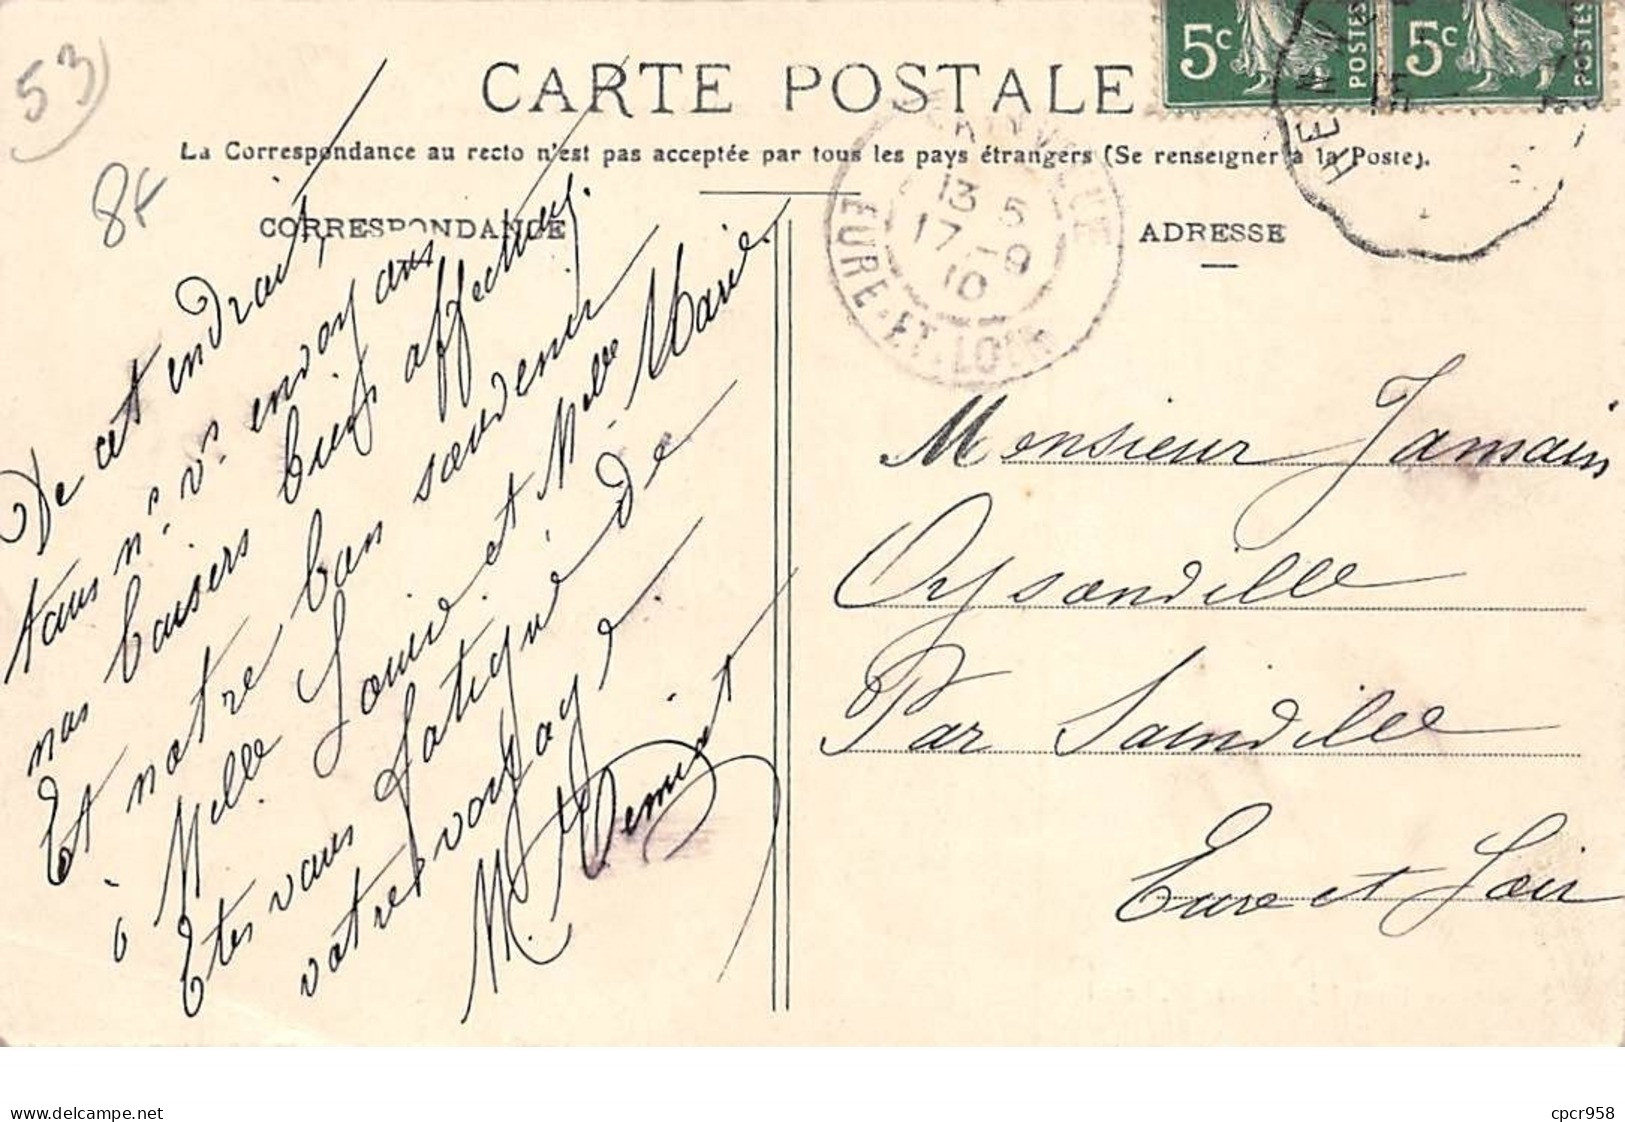 53
8F
CARTE POSTALE
La Correspondance au recto n'est pas acceptée par tous les pays étrangers (Se renseigner à la Poste).
CORRESPONDANCE
De cet endroit
tous n. vs envoyons
nos baisers bien affectueux.
Et notre bon souvenir
à Melle Louise et Melle Marie.
Etes vous fatigué de
votre voyage
M.
ADRESSE
Monsieur Jamain
Oysonville
Par Sainville
Eure et Loir
5c POSTES
5c POSTES
13 5
17-9
10
EURE-ET-LOIR
delcampe.net
cpcr958